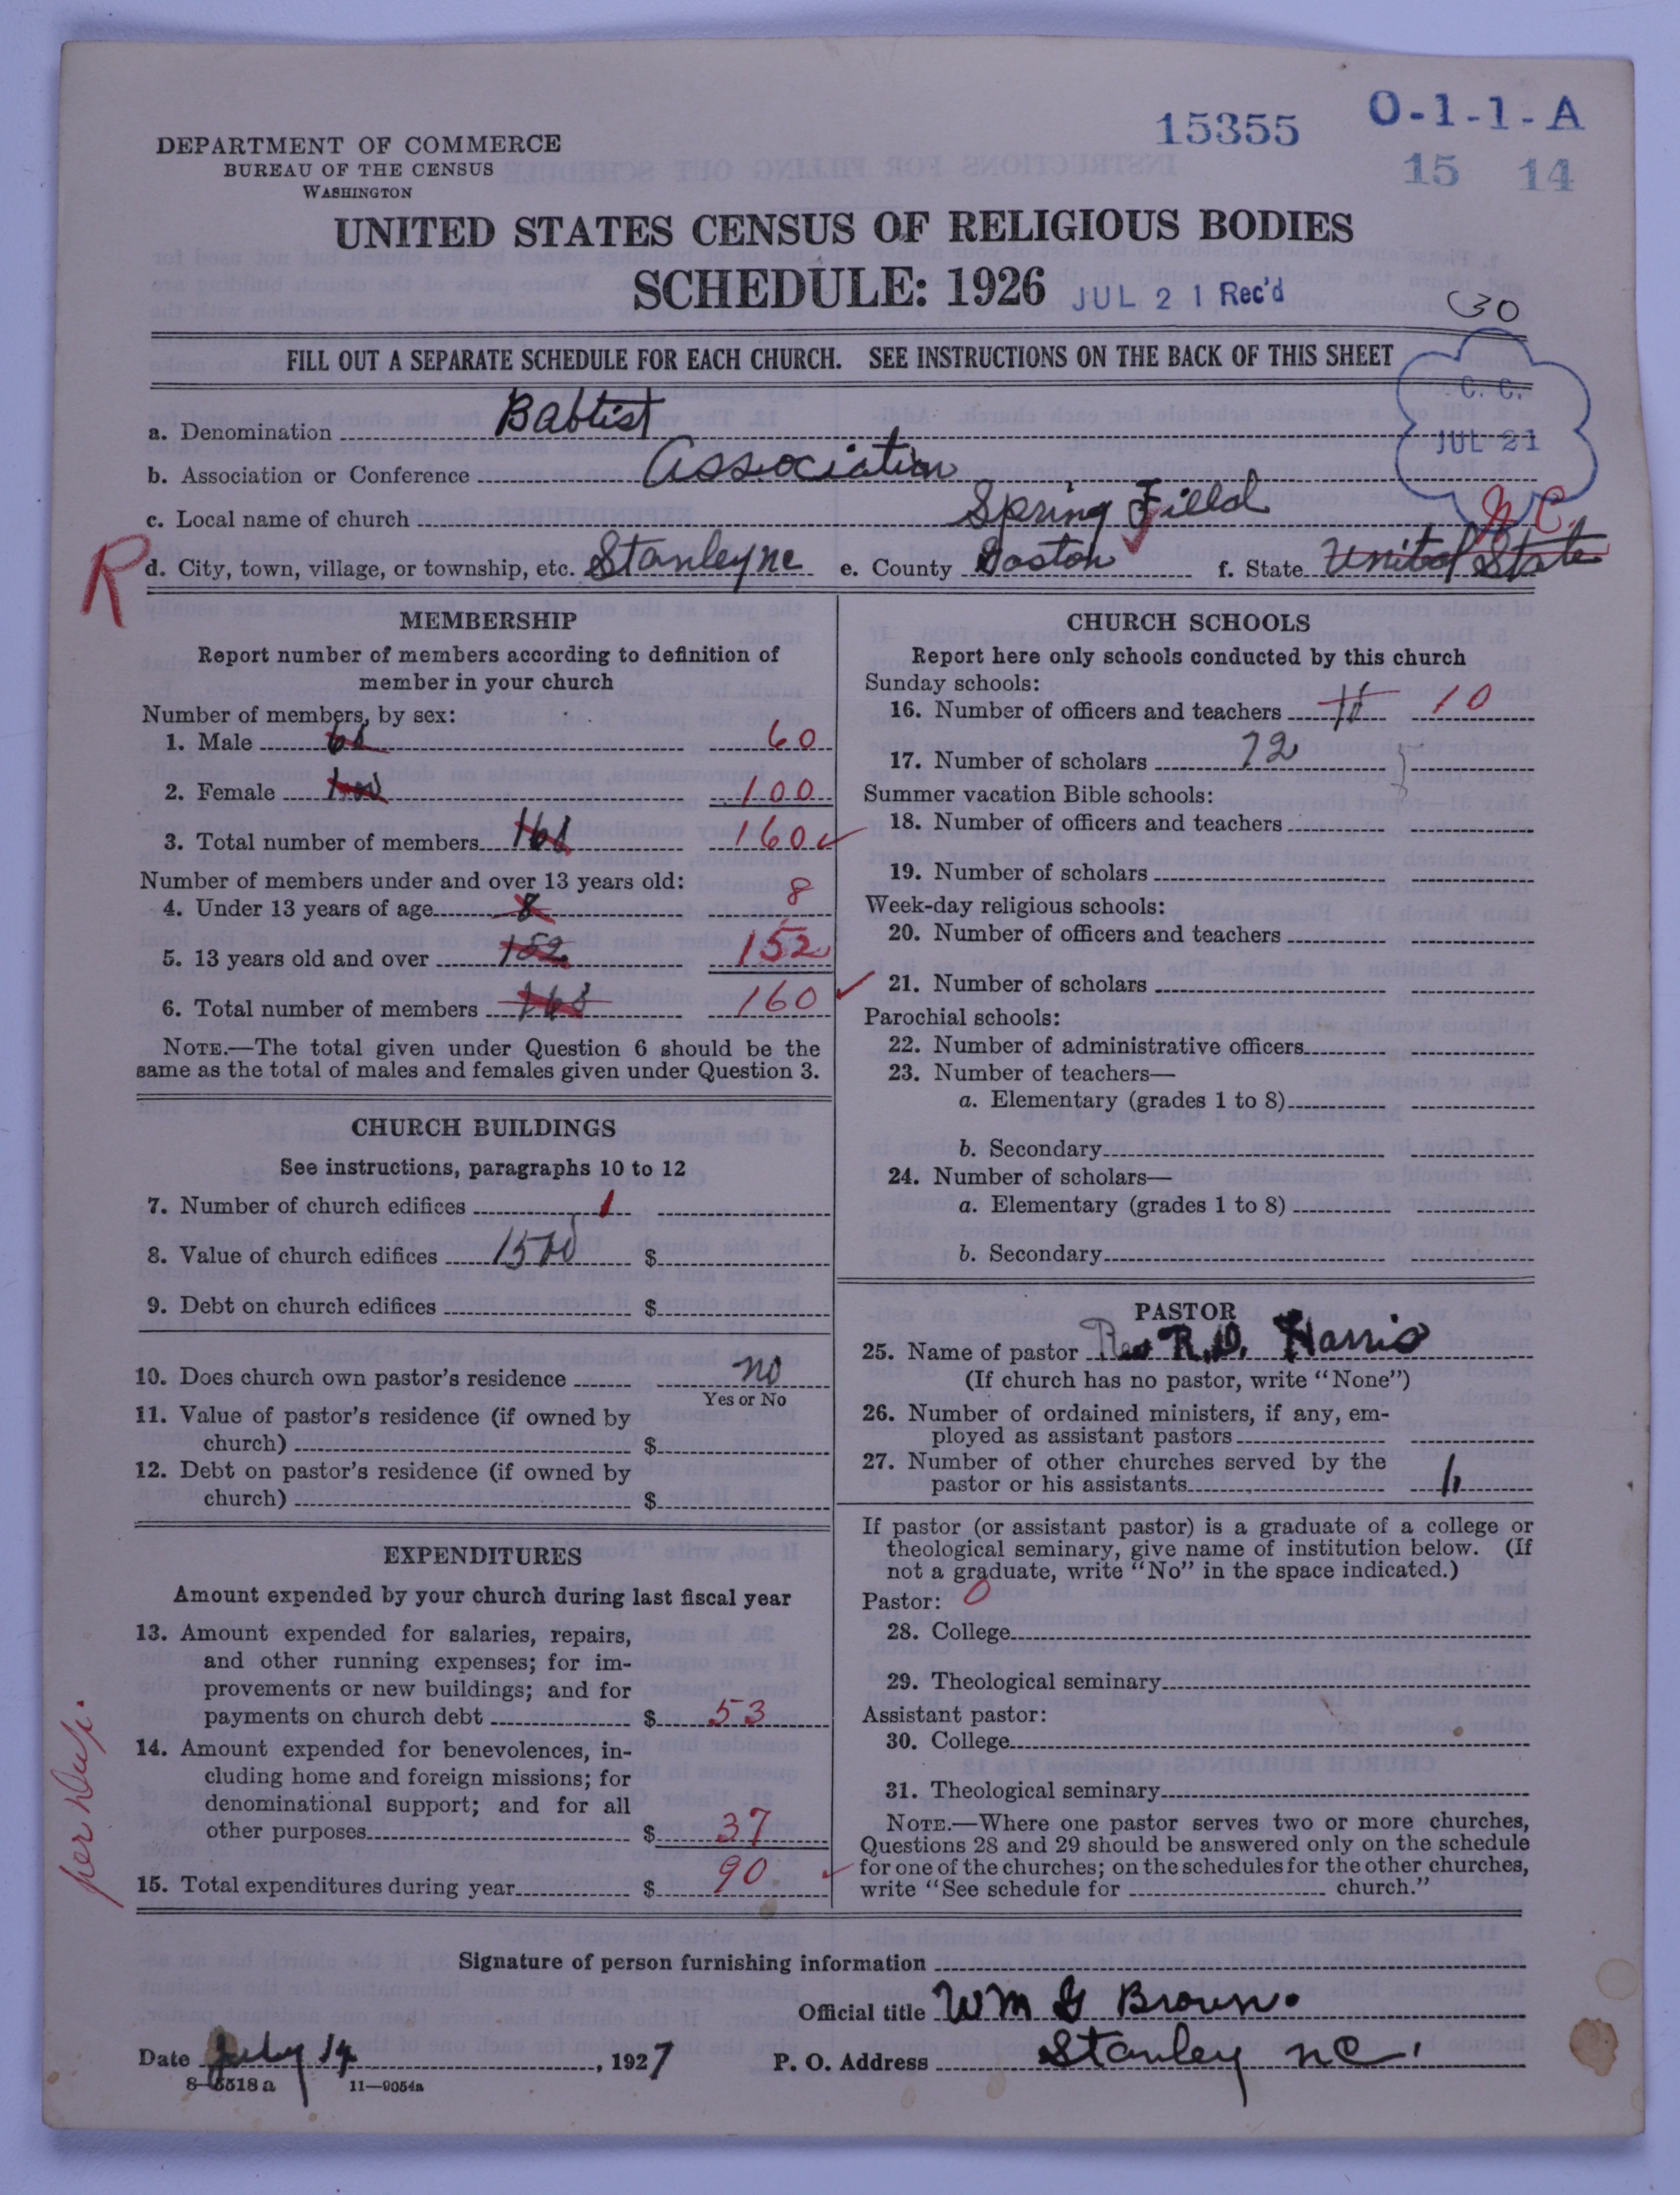 15355 O-1-1-A
15 14
DEPARTMENT OF COMMERCE
BUREAU OF THE CENSUS
WASHINGTON
UNITED STATES CENSUS OF RELIGIOUS BODIES
SCHEDULE: 1926 JUL 21 Rec'd
30
FILL OUT A SEPARATE SCHEDULE FOR EACH CHURCH. SEE INSTRUCTIONS ON THE BACK OF THIS SHEET
C. C.
JUL 21
a. Denomination Babtist
b. Association or Conference Association
c. Local name of church Spring Field
N.C.
R
d. City, town, village, or township, etc. Stanley nc e. County Gaston f. State United State
MEMBERSHIP
Report number of members according to definition of
member in your church
Number of members, by sex:
1. Male 60 60
2. Female 100 100
3. Total number of members 160 160
Number of members under and over 13 years old:
4. Under 13 years of age 8 8
5. 13 years old and over 152 152
6. Total number of members 160
NOTE.—The total given under Question 6 should be the
same as the total of males and females given under Question 3.
CHURCH BUILDINGS
See instructions, paragraphs 10 to 12
7. Number of church edifices 1
8. Value of church edifices 1500 $
9. Debt on church edifices $
10. Does church own pastor's residence no
Yes or No
11. Value of pastor's residence (if owned by
church) $
12. Debt on pastor's residence (if owned by
church) $
EXPENDITURES
Amount expended by your church during last fiscal year
13. Amount expended for salaries, repairs,
and other running expenses; for im-
provements or new buildings; and for
payments on church debt $ 53
14. Amount expended for benevolences, in-
cluding home and foreign missions; for
denominational support; and for all
other purposes $ 37
15. Total expenditures during year $ 90
per
CHURCH SCHOOLS
Report here only schools conducted by this church
Sunday schools:
16. Number of officers and teachers 10
17. Number of scholars 72
Summer vacation Bible schools:
18. Number of officers and teachers
19. Number of scholars
Week-day religious schools:
20. Number of officers and teachers
21. Number of scholars
Parochial schools:
22. Number of administrative officers
23. Number of teachers—
a. Elementary (grades 1 to 8)
b. Secondary
24. Number of scholars—
a. Elementary (grades 1 to 8)
b. Secondary
PASTOR
25. Name of pastor Rev R.D. Harris
(If church has no pastor, write "None")
26. Number of ordained ministers, if any, em-
ployed as assistant pastors
27. Number of other churches served by the
pastor or his assistants
If pastor (or assistant pastor) is a graduate of a college or
theological seminary, give name of institution below. (If
not a graduate, write "No" in the space indicated.)
Pastor: 0
28. College
29. Theological seminary
Assistant pastor:
30. College
31. Theological seminary
NOTE.—Where one pastor serves two or more churches,
Questions 28 and 29 should be answered only on the schedule
for one of the churches; on the schedules for the other churches,
write "See schedule for church."
Signature of person furnishing information
Official title WM G Brown.
Date July 14, 1927 P. O. Address Stanley nc.
8-5518a 11-9054a